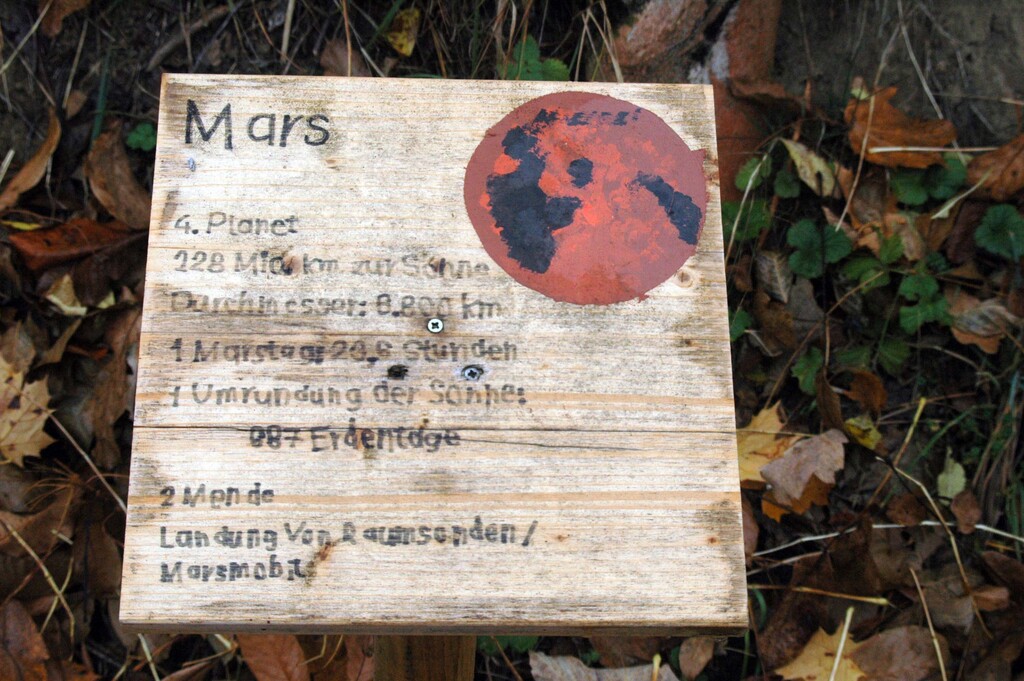 Mars
4. Planet
228 Mio. km zur Sonne
Durchmesser: 6.800 km
1 Marstag: Stunden
1 Umrundung der Sonne:
687 Erdentage
2 Monde
Landung von Raumsonden/
Marsmobil